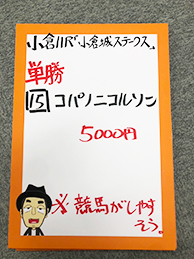 小倉11R「小倉城ステークス」
単勝
15 コパノニコルソン
5000円
※競馬がしやす
そう。